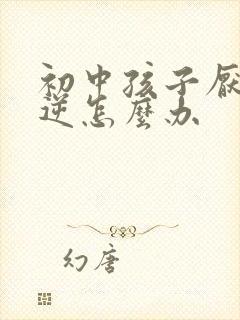 初中孩子厌
逆怎麽办
幻唐